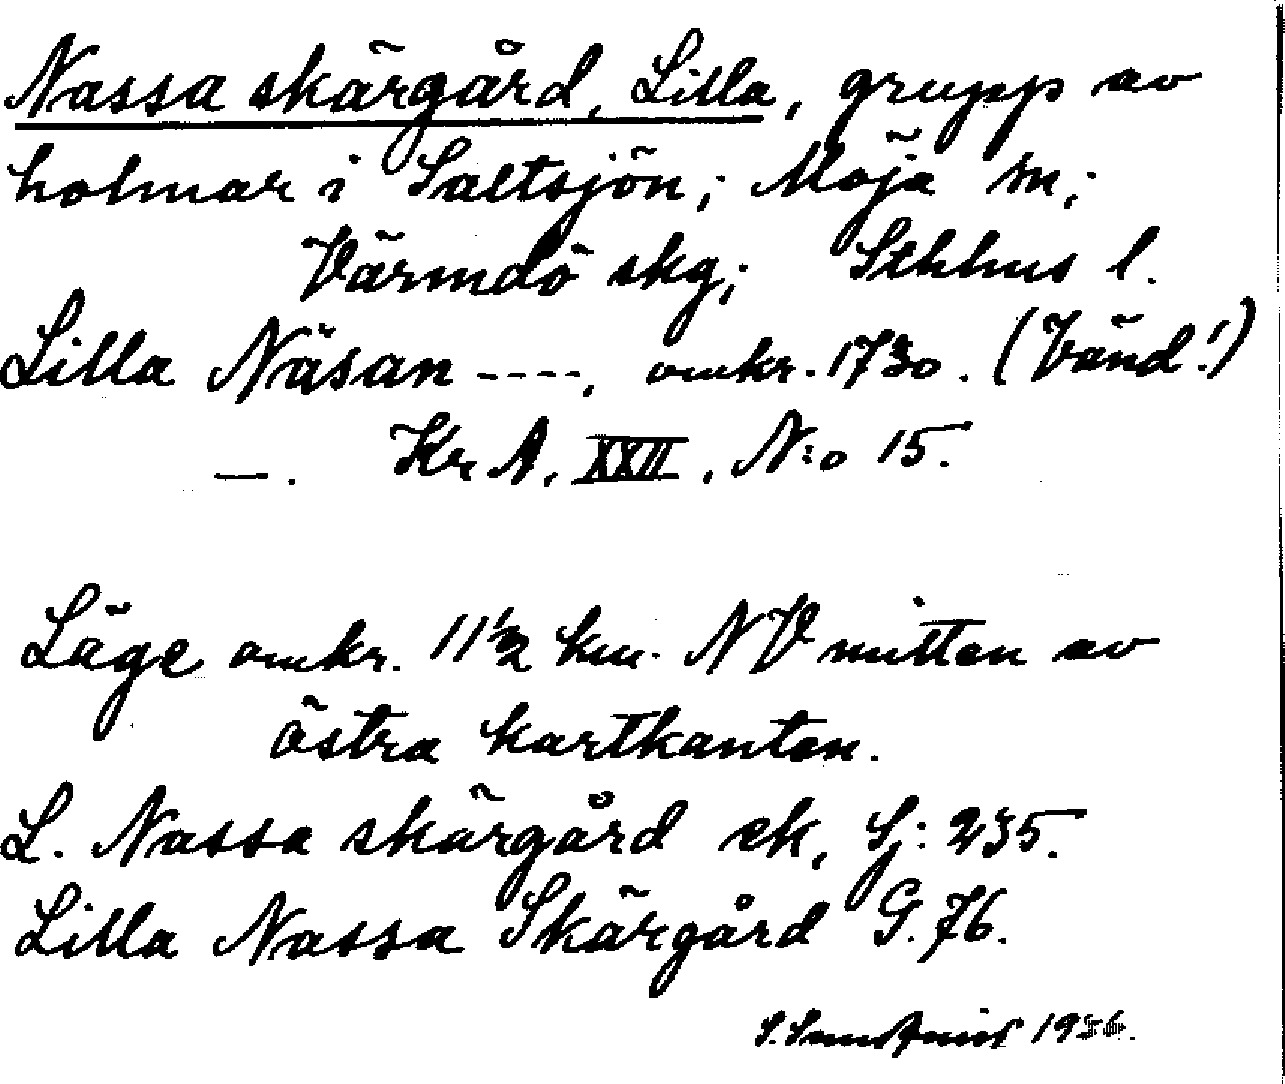 Nassa skärgård, Lilla, grupp av
holmar i Saltsjön; Möja sn;
Värmdö skg; Sthlms l.
Lilla Näsan ----, omkr. 1730. (Vänd!)
—. Kr A, XXII, N:o 15.
Läge omkr. 11½ km. NV mitten av
östra kartkanten.
L. Nassa skärgård ek, Sj: 235.
Lilla Nassa Skärgård G. 76.
S. 1936.